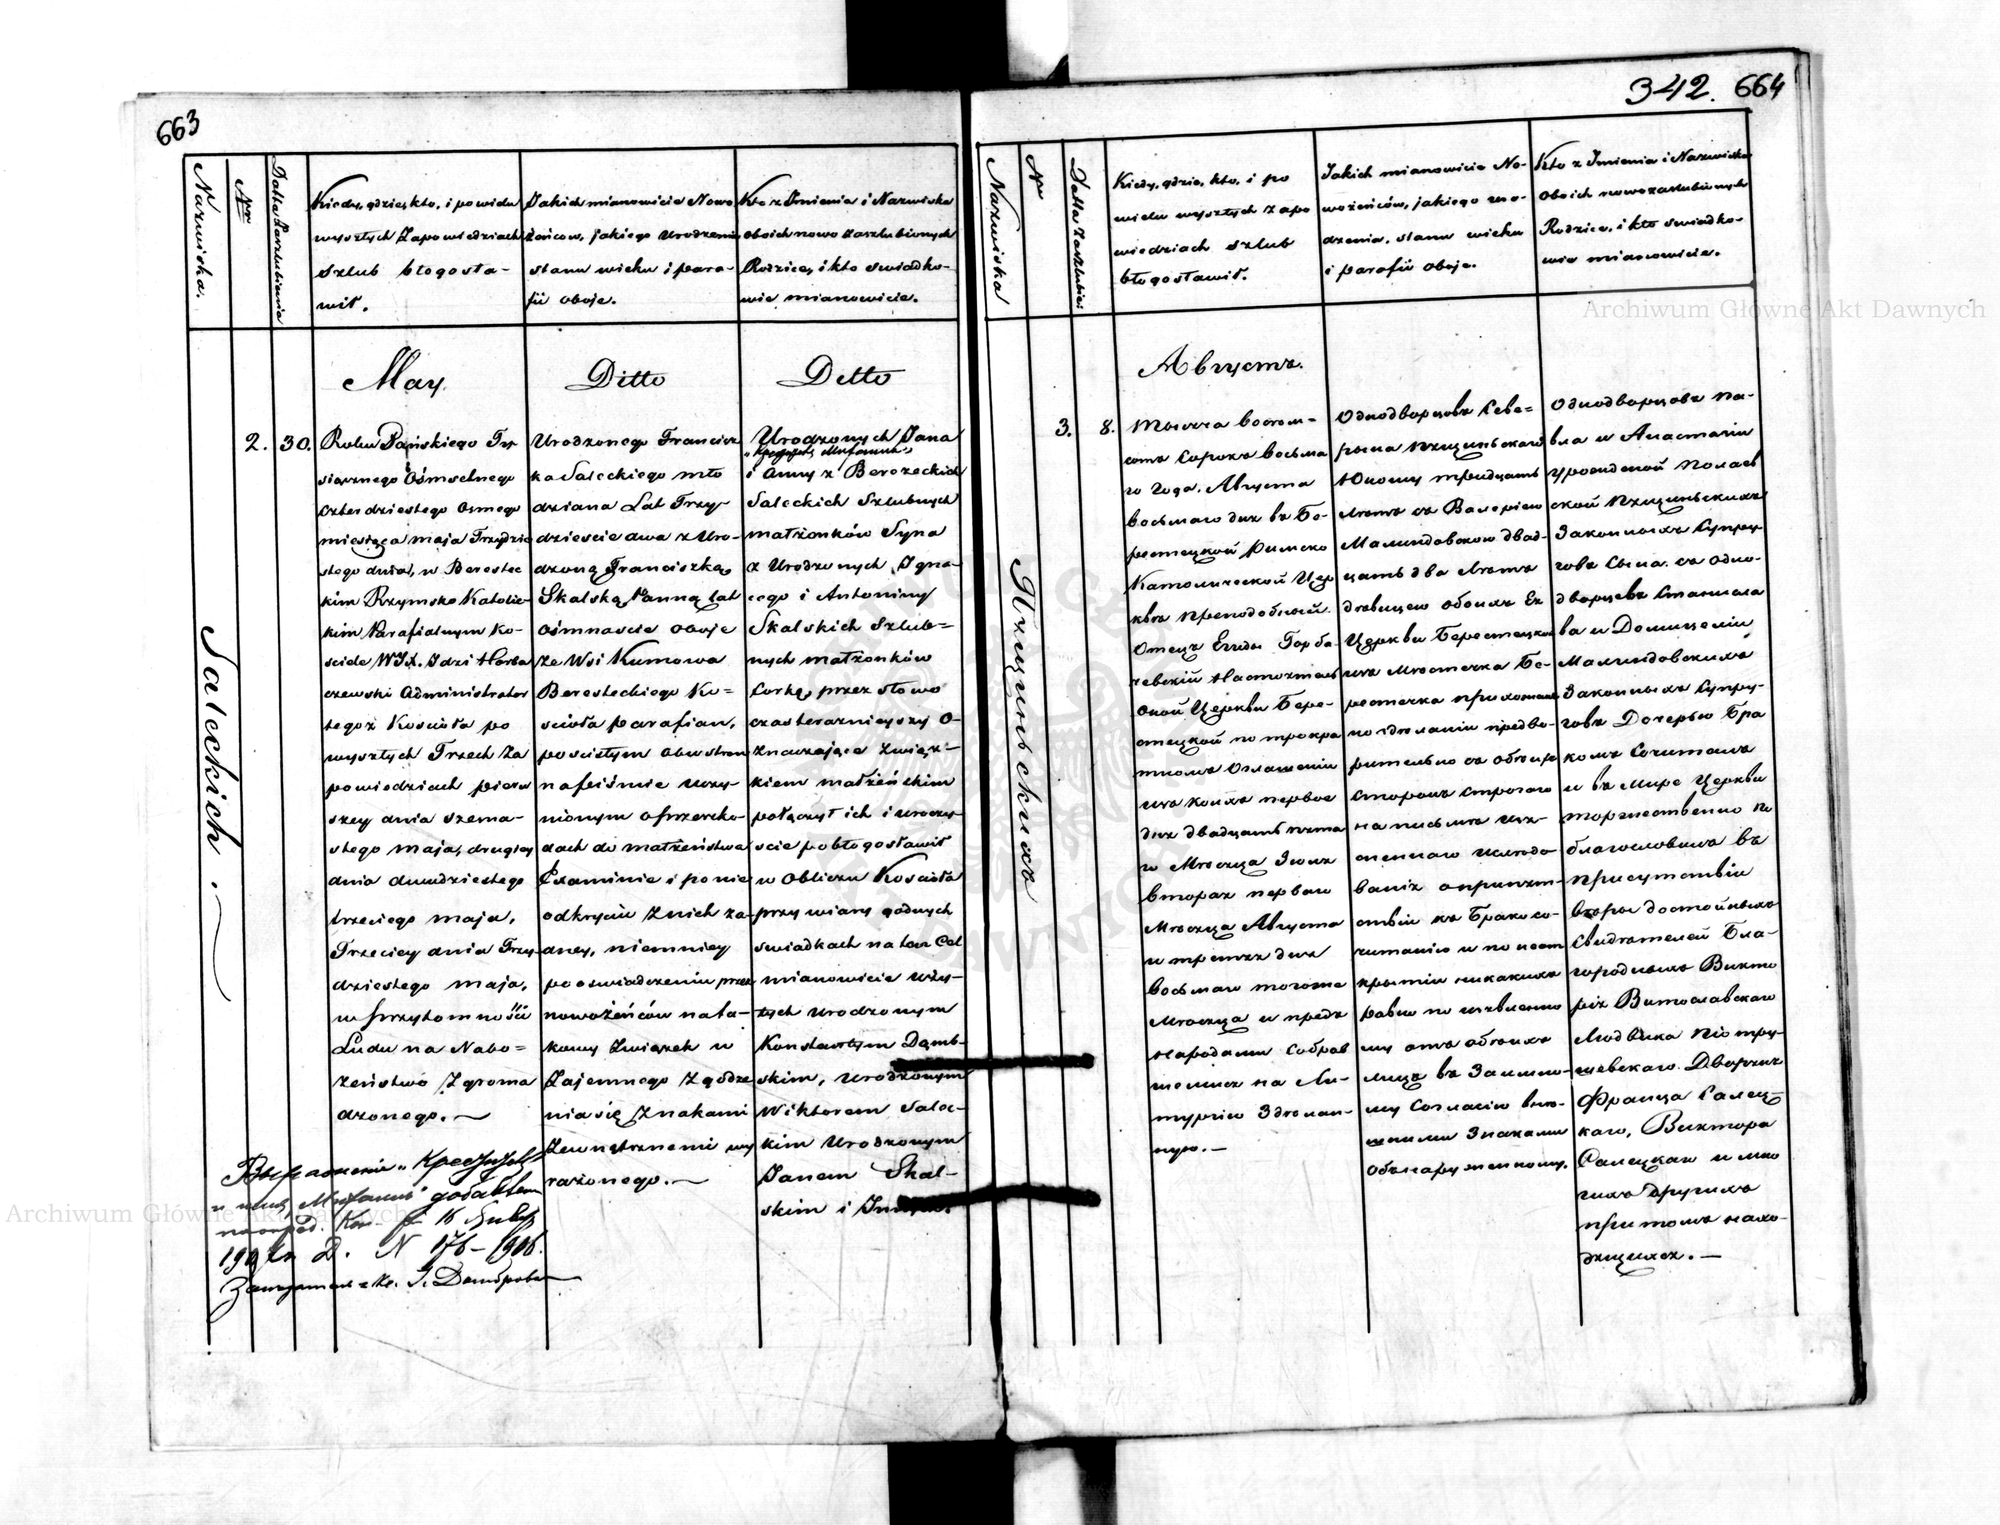 663
Nazwiska.
Nro
Datta Zaszlubienia
Kiedy, gdzie, kto, i po wielu
wyszłych Zapowiedziach
Szlub błogosła-
wił.
Jakich mianowicie Nowo
żeńcow, jakiego Urodzenia
stanu wieku i para-
fii oboje.
Kto z Imienia i Nazwiska
oboich nowo Zaszlubionych
Rodzice, i kto swiadko-
wie mianowicie.
Saleckich.
2.
30.
May.
Roku Pańskiego Ty-
siącznego Ośmsetnego
czterdziestego Osmego
miesiąca maja Trzydzie
stego dnia, w Berestec
kim Rzymsko Katolic-
kim Parafialnym Ko-
sciele WJX. Idzi Horba
czewski Administrator
tegoż Kościoła po
wyszłych Trzech Za
powiedziach pierw
szey dnia szesna-
stego maja, drugiey
dnia dwudziestego
trzeciego maja,
Trzeciey dnia Trzy-
dziestego maja,
w przytomności
Ludu na Nabo-
żeństwo Zgroma
dzonego.
Ditto
Urodzonego Francisz
ka Saleckiego mło
dziana Lat Trzy-
dziescie dwa z Uro-
dzoną Franciszką
Skalską Panną lat
Ośmnascie oboje
Ze Wsi Kumowa
Beresteckiego Ko-
ścioła parafian,
po scisłym obustron
na piśmie uczy-
nionym o przeszko-
dach do małżeństwa
Examinie i po nie
odkryciu Znich ża-
dney, niemniey
po oswiadczeniu przez
nowożeńców na ta-
kowy Związek w
Zajemnego Zgodze
nia się Znakami
Zewnętrznemi wy
rażonego.
Ditto
Urodzonych Jana
i Anny z Berezeckich
Saleckich Szlubnych
małżonków Syna
z Urodzonych Igna-
cego i Antoniny
Skalskich Szlub-
nych małżonków
Corką, przez słowo
czas teraznieyszy O-
znaczające Związ-
kiem małżeńskim
połączył ich i uroczy-
scie pobłogosławił
w Obliczu Kościoła
przy wiary godnych
swiadkach na ten Cel
mianowicie uży-
tych Urodzonym
Konstantym Dąmb-
skim, Urodzonym
Wiktorem Salec-
kim Urodzonym
Janem Skal-
skim i
Выражение
добавлено
N 176-1906.
342. 664
Nazwiska
Nr
Datta Zaszlubie:
Kiedy, gdzie, kto, i po
wielu wyszłych Zapo
wiedziach szlub
błogosławił.
Jakich mianowicie No-
wożeńców, jakiego uro-
dzenia, stanu wieku
i parafii oboje.
Kto z Imienia i Nazwiska
Oboich nowozaszlubionych
Rodzice, i kto swiadko-
wie mianowicie.
3.
8.
Августъ.
Тысяча восем-
сотъ сорокъ восьма
го года, Августа
восьмаго дня въ Бе-
рестецкой Римско
Католической Цер
кви Преподобный
Отецъ Егидій Горба-
чевскій Настоятель
оной Церкви Бере-
стецкой по трекра
тномъ оглашеніи
изъ коихъ первое
дня двадцать пята
го Мѣсяца Іюля
второе перваго
Мѣсяца Августа
и третье дня
восьмаго тогоже
Мѣсяца и предъ
народами собрав
шемися на Ли-
тургію Здѣлан-
ную.
Однодворцовъ Севе-
Юношу тридцать
лѣтъ съ Валеріею
Малиндовскою двад-
цать два лѣта
дѣвицею обоихъ Ея
Церкви Берестецкой
изъ мѣстечка Бе-
рестечка прихожанъ
по здѣланіи предва-
рительно съ обоихъ
сторонъ строгаго
на письмѣ уч-
иненнаго изслѣдо
ванія о препят-
ствіи къ Бракосо-
читанію и по неот
крытіи никакихъ
равно по изъявлено
му отъ обоихъ
лицъ въ Заимно-
му Согласію внѣ-
шними Знаками
обнаруженному.
Однодворцовъ Па-
вла и Анастасіи
урожденной Полаев
Законныхъ Супру-
говъ Сына. съ одно-
дворцевъ Станисла
ва и Домицеліи
Малиндовскихъ
Законныхъ Супру-
говъ Дочерью Бра
комъ Сочиталъ
и въ Мире Церкви
торжественно по
благословилъ въ
присутствіи
вѣры достойныхъ
Свидѣтелей Бла-
городныхъ Викто
рія Витославскаго
Людвика Піотру-
шевскаго. Дворянъ
Франца Салец-
каго, Виктора
Салецкаго и мно
гихъ другихъ
притомъ нахо-
дящихся.
Archiwum Główne Akt Dawnych
Archiwum Główne Akt Dawnych